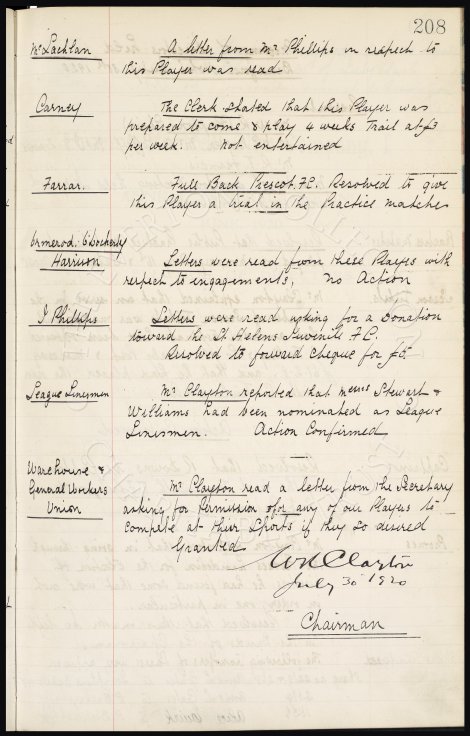 208
McLachlan
A letter from Mr Phillips in respect to
this Player was read
Carney
The Clerk stated that this Player was
prepared to come & play 4 weeks Trail at £3
per week. not entertained
Farrar.
Full Back Prescot F.C. Resolved to give
this Player a trial in the Practice matches
Ormerod. O'Dockerty
Harrison
Letters were read from these Players with
respect to engagements, no Action
J Phillips
Letters were read asking for a Donation
toward the St Helens Juvenile F.C.
Resolved to forward Cheque for £5
League Linesmen
Mr Clayton reported that Messrs Stewart &
Williams had been nominated as League
Linesmen. Action Confirmed
Warehouse &
General Workers
Union
Mr Clayton read a letter from the Secretary
asking for Permission for any of our Players to
Compete at their Sports if they so desired
Granted
W R Clayton
July 30 1920
Chairman